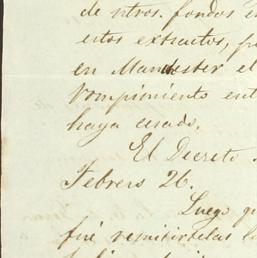 de ntros. fondos en
estos extractos, p
en Manchester el
rompimiento ent
haya cesado.
El Decreto
Febrero 26.
Luego q
fué remitirtelas la